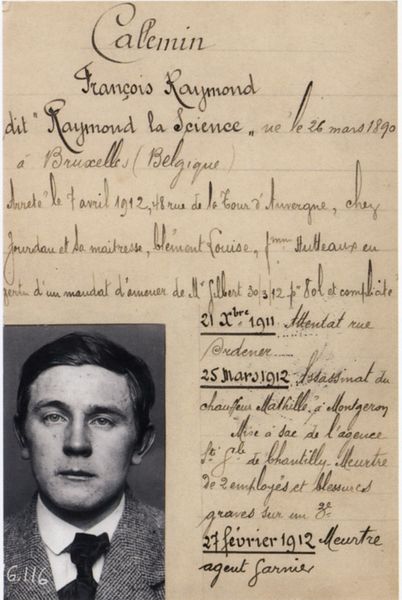 Callemin
François Raymond
dit "Raymond la Science" né le 26 mars 1890
à Bruxelles (Belgique)
Arrêté le 7 avril 1912, 48 rue de la Tour d'Auvergne, chez
Jourdan et sa maitresse, Clément Louise, fmme Hutteaux en
vertu d'un mandat d'amener de Mr Gilbert 30/3/12 pr Vol et complicité
21 Xbre 1911 Attentat rue
Ordener
25 Mars 1912 Assassinat du
chauffeur Mathillé, à Montgeron
Mise à sac de l'agence
Sté Gale de Chantilly - Meurtre
de 2 employés et blessures
graves sur un 3e
27 février 1912 Meurtre
agent Garnier
G.116